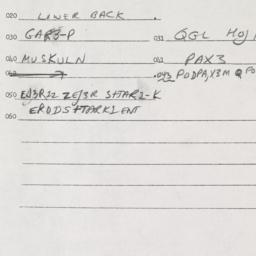 020 LOWER BACK
030 GAR3-P 031 QGL HOJ
040 MUSKULN 041 PAX3
042 043 PODPAX3M
050 EJ3R12 ZEJ3R SHTAR1-K
060 ERDDSHTARK1ENT